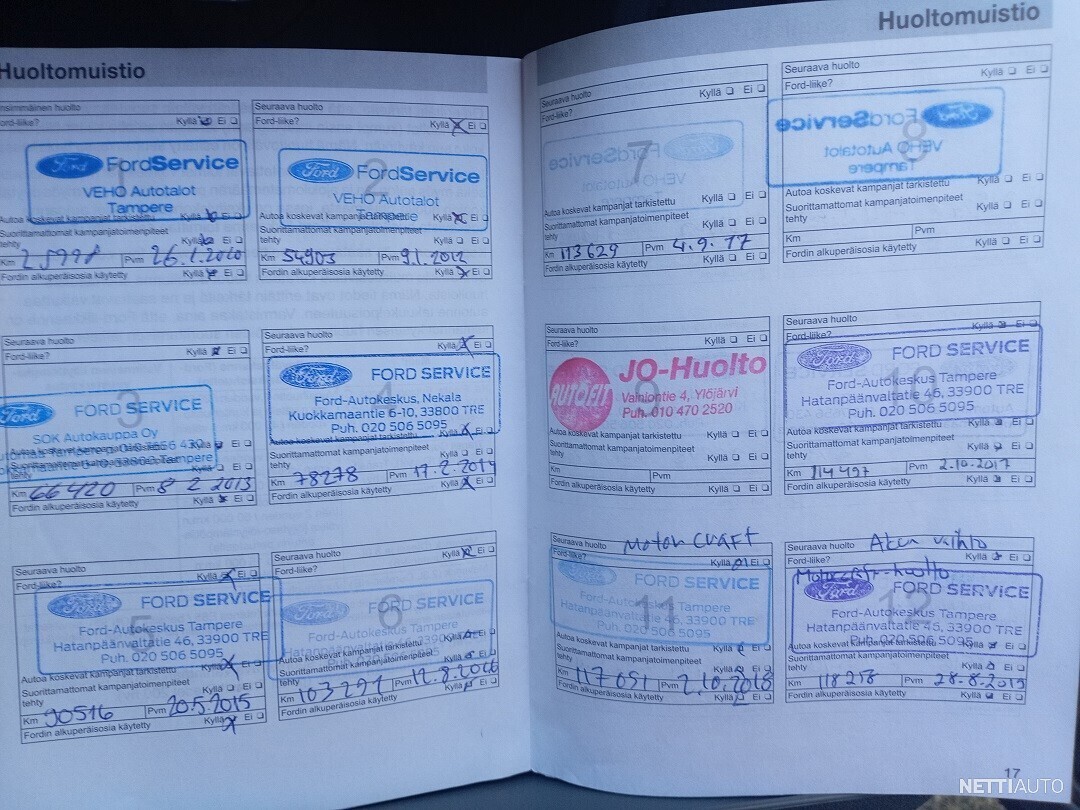 Huoltomuistio
Ford-liike? Kyllä Ei
1
Ford FordService
VEHO Autotalot
Tampere
Autoa koskevat kampanjat tarkistettu Kyllä Ei
Suorittamattomat kampanjatoimenpiteet
tehty Kyllä Ei
Km Pvm
Fordin alkuperäisosia käytetty Kyllä Ei
Seuraava huolto
Ford-liike? Kyllä Ei
2
Ford FordService
VEHO Autotalot
Tampere
Autoa koskevat kampanjat tarkistettu Kyllä Ei
Suorittamattomat kampanjatoimenpiteet
tehty Kyllä Ei
Km 54903 Pvm 9.1.2012
Fordin alkuperäisosia käytetty Kyllä Ei
Seuraava huolto
Ford-liike? Kyllä Ei
3
Ford FORD SERVICE
SOK Autokauppa Oy
Kyllä Ei
Km 66420 Pvm 8 2 2013
Fordin alkuperäisosia käytetty Kyllä Ei
Seuraava huolto
Ford-liike? Kyllä Ei
4
Ford FORD SERVICE
Ford-Autokeskus, Nekala
Kuokkamaantie 6-10, 33800 TRE
Puh. 020 506 5095
Autoa koskevat kampanjat tarkistettu Kyllä Ei
Suorittamattomat kampanjatoimenpiteet
tehty Kyllä Ei
Km 78278 Pvm 17.2.2014
Fordin alkuperäisosia käytetty Kyllä Ei
Seuraava huolto
Ford-liike? Kyllä Ei
5
Ford FORD SERVICE
Ford-Autokeskus Tampere
Hatanpäänvaltatie 46, 33900 TRE
Puh. 020 506 5095
Autoa koskevat kampanjat tarkistettu Kyllä Ei
Suorittamattomat kampanjatoimenpiteet
tehty Kyllä Ei
Km 90516 Pvm 20.5.2015
Fordin alkuperäisosia käytetty Kyllä Ei
Seuraava huolto
Ford-liike? Kyllä Ei
6
Ford FORD SERVICE
Ford-Autokeskus Tampere
Hatanpäänvaltatie 46, 33900 TRE
Autoa koskevat kampanjat tarkistettu Kyllä Ei
Suorittamattomat kampanjatoimenpiteet
tehty Kyllä Ei
Km 103291 Pvm
Fordin alkuperäisosia käytetty Kyllä Ei
Huoltomuistio
Seuraava huolto
Ford-liike? Kyllä Ei
7
Ford FordService
VEHO Autotalot
Autoa koskevat kampanjat tarkistettu Kyllä Ei
Suorittamattomat kampanjatoimenpiteet
tehty Kyllä Ei
Km 113629 Pvm 4.9.17
Fordin alkuperäisosia käytetty Kyllä Ei
Seuraava huolto
Ford-liike? Kyllä Ei
8
Ford FordService
VEHO Autotalot
Tampere
Autoa koskevat kampanjat tarkistettu Kyllä Ei
Suorittamattomat kampanjatoimenpiteet
tehty Kyllä Ei
Km Pvm
Fordin alkuperäisosia käytetty Kyllä Ei
Seuraava huolto
Ford-liike? Kyllä Ei
9
AUTOFIT JO-Huolto
Vainiontie 4, Ylöjärvi
Puh. 010 470 2520
Autoa koskevat kampanjat tarkistettu Kyllä Ei
Suorittamattomat kampanjatoimenpiteet
tehty Kyllä Ei
Km Pvm
Fordin alkuperäisosia käytetty Kyllä Ei
Seuraava huolto
Ford-liike? Kyllä Ei
10
Ford FORD SERVICE
Ford-Autokeskus Tampere
Hatanpäänvaltatie 46, 33900 TRE
Puh. 020 506 5095
Autoa koskevat kampanjat tarkistettu Kyllä Ei
Suorittamattomat kampanjatoimenpiteet
tehty Kyllä Ei
Km 114497 Pvm 2.10.2017
Fordin alkuperäisosia käytetty Kyllä Ei
Seuraava huolto Motor CRAFT
Ford-liike? Kyllä Ei
11
Ford FORD SERVICE
Ford-Autokeskus Tampere
Hatanpäänvaltatie 46, 33900 TRE
Puh. 020 506 5095
Autoa koskevat kampanjat tarkistettu Kyllä Ei
Suorittamattomat kampanjatoimenpiteet
tehty Kyllä Ei
Km 117051 Pvm 2.10.2018
Fordin alkuperäisosia käytetty Kyllä Ei
Seuraava huolto vaihto
Ford-liike? Kyllä Ei
Motorcraft-huolto
12
Ford FORD SERVICE
Ford-Autokeskus Tampere
Hatanpäänvaltatie 46, 33900 TRE
Puh. 020 506 5095
Autoa koskevat kampanjat tarkistettu Kyllä Ei
Suorittamattomat kampanjatoimenpiteet
tehty Kyllä Ei
Km 118258 Pvm 28.8.2019
Fordin alkuperäisosia käytetty Kyllä Ei
17
NETTIAUTO